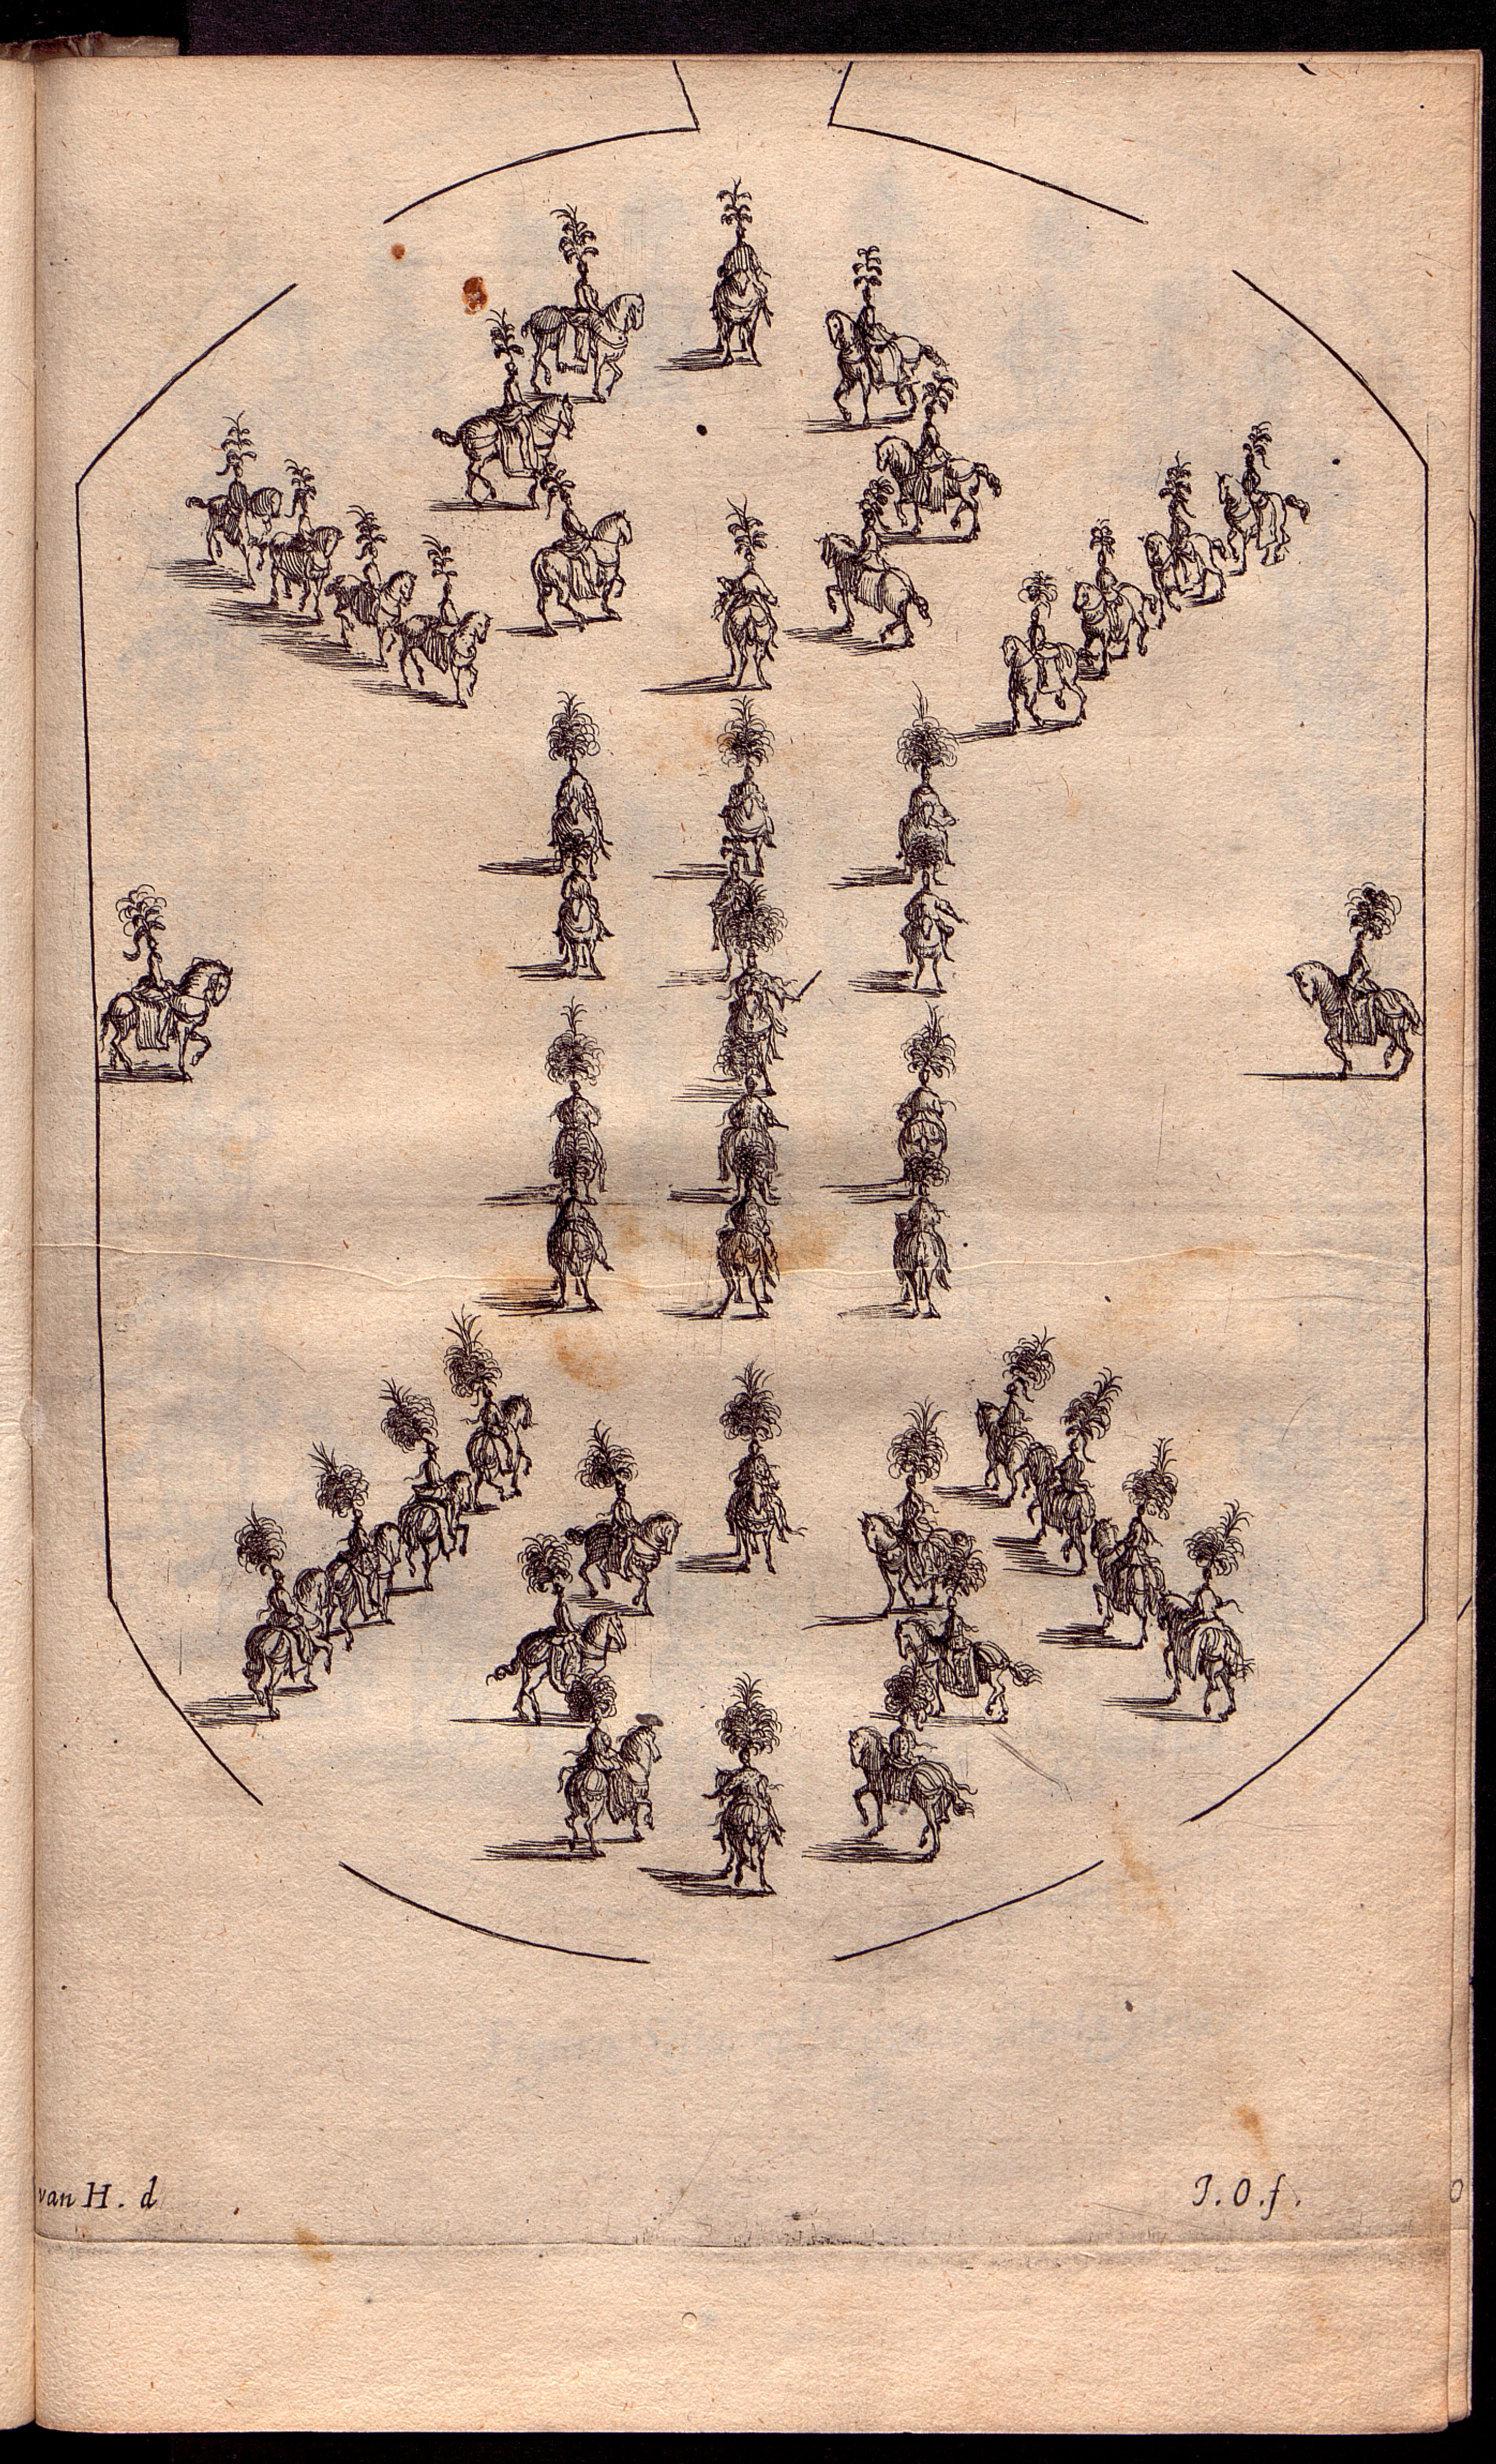 van H. d
J. O. f.